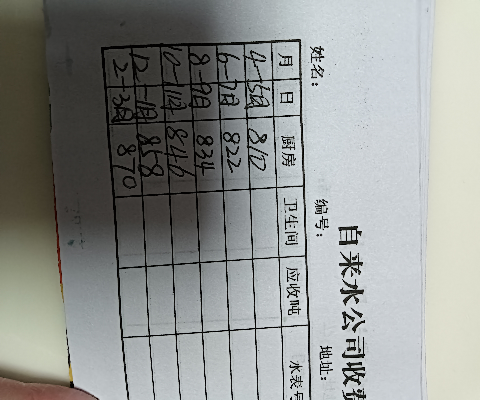 自来水公司收费
姓名： 编号： 地址：
月 日 厨房 卫生间 应收吨 水表号
4-5月 810
6-7月 822
8-9月 834
10-11月 846
12-1月 858
2-3月 870